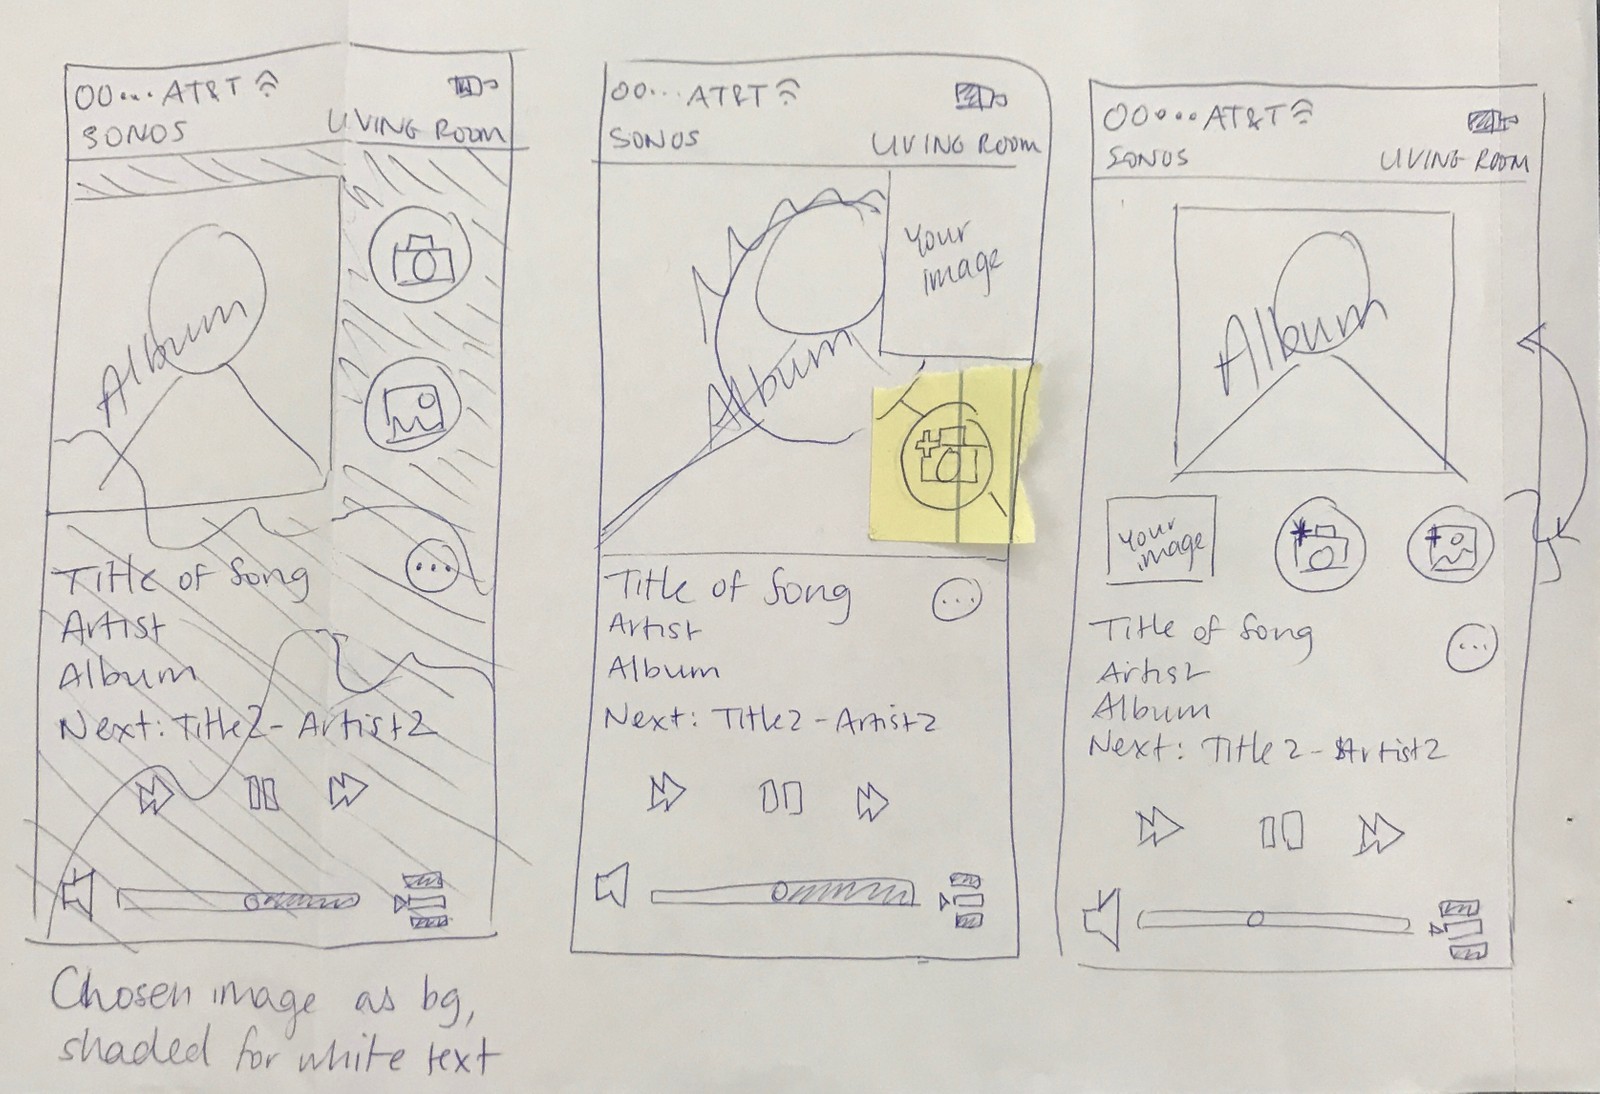 OO... AT&T
SONOS LIVING ROOM
Album
Title of Song
...
Artist
Album
Next: Title2 - Artist2
Chosen image as bg,
shaded for white text
OO... AT&T
SONOS LIVING ROOM
Your
image
Album
Title of Song
...
Artist
Album
Next: Title2 - Artist2
OO... AT&T
SONOS LIVING ROOM
Album
Your
image
Title of Song
...
Artist
Album
Next: Title 2 - Artist2